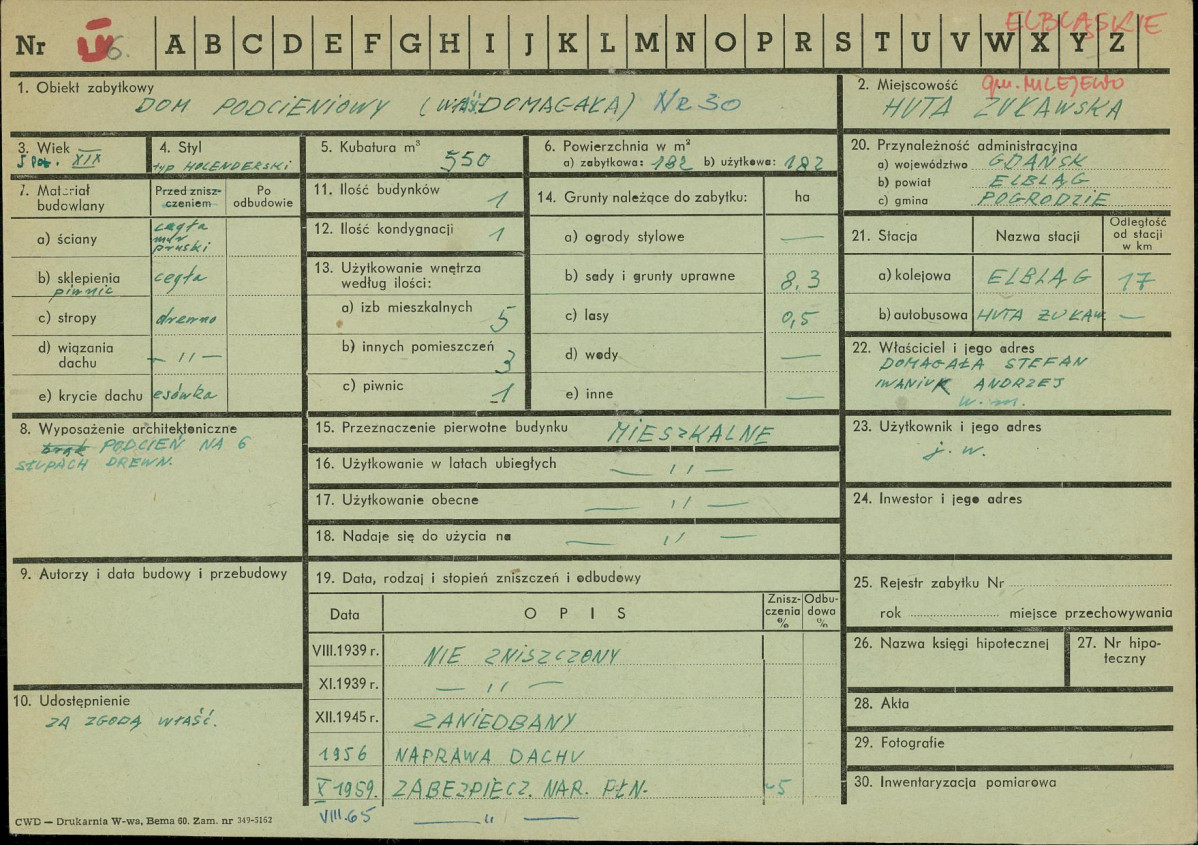 ELBLĄSKIE
Nr 6. A B C D E F G H I J K L M N O P R S T U V W X Y Z
1. Obiekt zabytkowy
DOM PODCIENIOWY (WŁAŚ. DOMAGAŁA) Nr 30
2. Miejscowość gm. MILEJEWO
HUTA ŻUŁAWSKA
3. Wiek
I POŁ. XIX
4. Styl
typ HOLENDERSKI
5. Kubatura m³ 550
6. Powierzchnia w m²
a) zabytkowa: 182 b) użytkowa: 182
20. Przynależność administracyjna
a) województwo GDAŃSK
b) powiat ELBLĄG
c) gmina POGRODZIE
7. Materiał budowlany
Przed znisz-
czeniem
Po
odbudowie
a) ściany cegła
mur
pruski
b) sklepienia cegła
piwnic
c) stropy drewno
d) wiązania
dachu — " —
e) krycie dachu esówka
11. Ilość budynków 1
12. Ilość kondygnacji 1
13. Użytkowanie wnętrza
według ilości:
a) izb mieszkalnych 5
b) innych pomieszczeń 3
c) piwnic 1
14. Grunty należące do zabytku: ha
a) ogrody stylowe —
b) sady i grunty uprawne 8,3
c) lasy 0,5
d) wody —
e) inne —
21. Stacja Nazwa stacji
Odległość
od stacji
w km
a) kolejowa ELBLĄG 17
b) autobusowa HUTA ŻUŁAW. —
22. Właściciel i jego adres
DOMAGAŁA STEFAN
IWANIUK ANDRZEJ
w. m.
8. Wyposażenie architektoniczne
brak PODCIEŃ NA 6
SŁUPACH DREWN.
15. Przeznaczenie pierwotne budynku MIESZKALNE
16. Użytkowanie w latach ubiegłych — " —
17. Użytkowanie obecne — " —
18. Nadaje się do użycia na — " —
23. Użytkownik i jego adres
j. w.
24. Inwestor i jego adres
9. Autorzy i data budowy i przebudowy
19. Data, rodzaj i stopień zniszczeń i odbudowy
Data OPIS
Znisz-
czenia
%
Odbu-
dowa
%
VIII.1939 r. NIE ZNISZCZONY
XI.1939 r. — " —
XII.1945 r. ZANIEDBANY
1956 NAPRAWA DACHU
X 1959. ZABEZPIECZ. NAR. PŁN. ~5
VIII.65 — " —
25. Rejestr zabytku Nr
rok miejsce przechowywania
26. Nazwa księgi hipotecznej
27. Nr hipo-
teczny
28. Akta
29. Fotografie
30. Inwentaryzacja pomiarowa
10. Udostępnienie
ZA ZGODĄ WŁAŚĆ.
CWD — Drukarnia W-wa, Bema 60. Zam. nr 349-5162